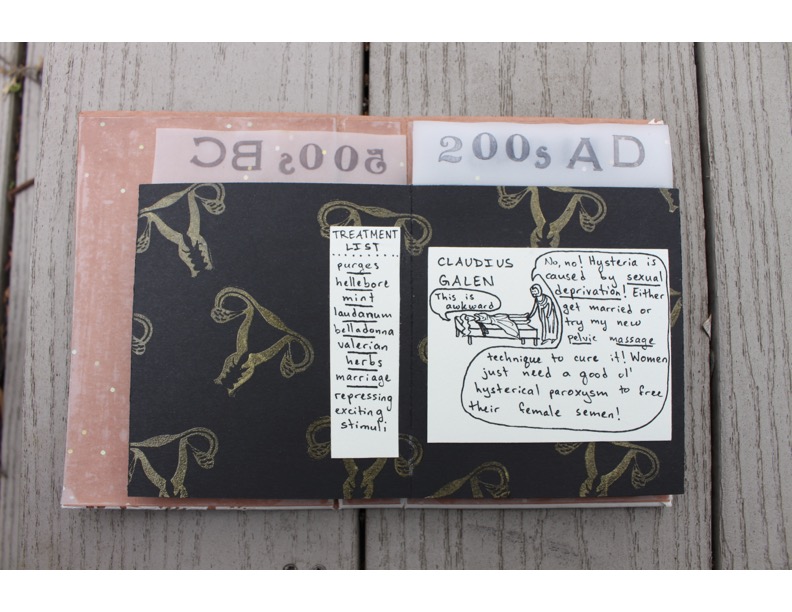 500s BC
200s AD
TREATMENT
LIST
purges
hellebore
mint
laudanum
belladonna
valerian
herbs
marriage
repressing
exciting
stimuli
CLAUDIUS
GALEN
This is
awkward
No, no! Hysteria is
caused by sexual
deprivation! Either
get married or
try my new
pelvic massage
technique to cure it! Women
just need a good ol'
hysterical paroxysm to free
their female semen!